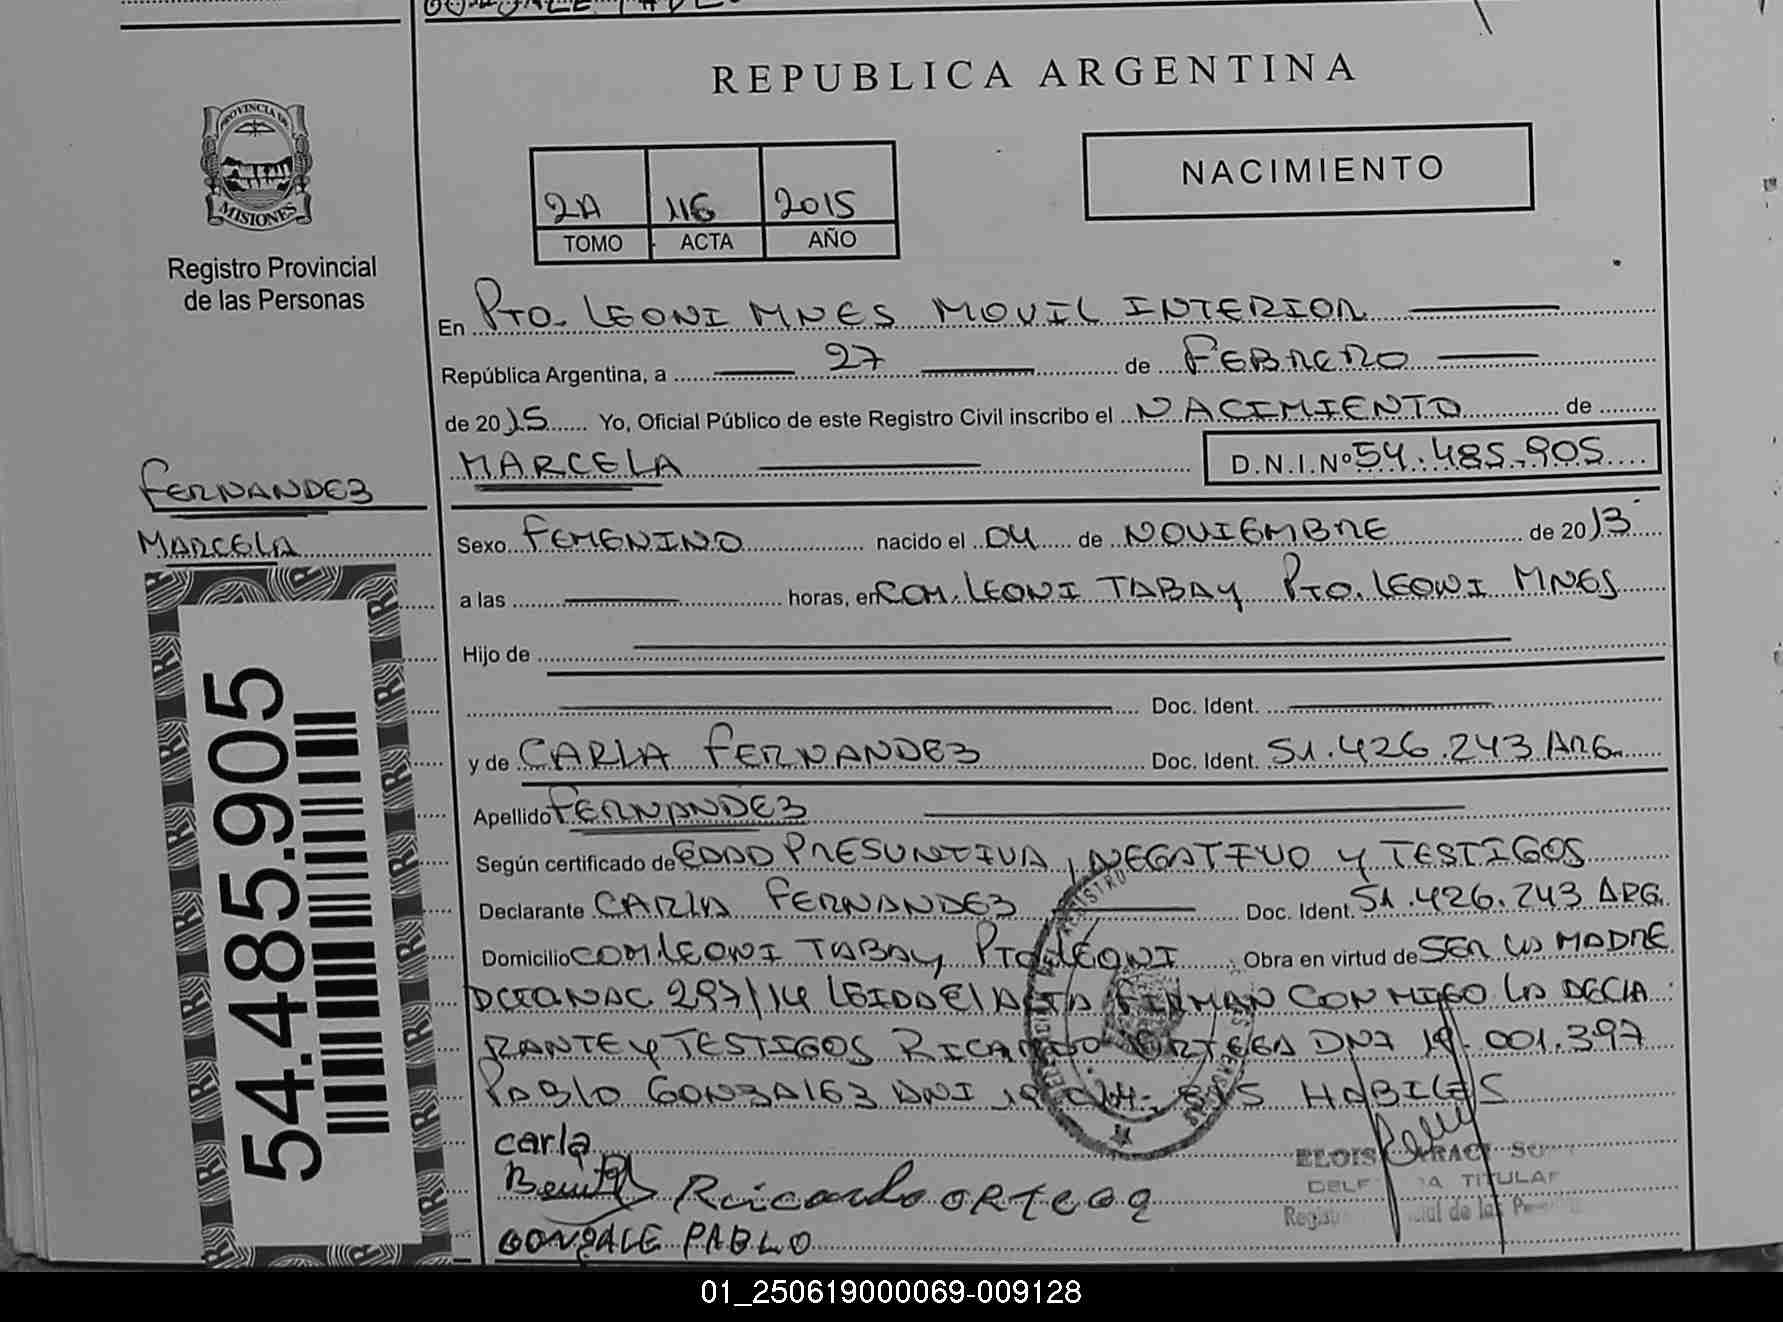 REPUBLICA ARGENTINA
PROVINCIA DE
MISIONES
Registro Provincial
de las Personas
NACIMIENTO
2A 116 2015
TOMO ACTA AÑO
En Pto. LEONI MNES MOVIL INTERIOR
República Argentina, a 27 de FEBRERO
de 2015 Yo, Oficial Público de este Registro Civil inscribo el NACIMIENTO de
MARCELA D.N.I.Nº 54.485.905
FERNANDEZ
MARCELA
Sexo FEMENINO nacido el 04 de NOVIEMBRE de 2013
a las horas, en COM. LEONI TABAY Pto. LEONI MNES
Hijo de
Doc. Ident.
y de CARLA FERNANDEZ Doc. Ident. 51.426.243 ARG.
Apellido FERNANDEZ
Según certificado de EDAD PRESUNTIVA, NEGATIVO y TESTIGOS
Declarante CARLA FERNANDEZ Doc. Ident. 51.426.243 ARG.
Domicilio COM. LEONI TABAY Pto LEONI Obra en virtud de SER LA MADRE
297/14 LEIDA El ACTA FIRMAN CONMIGO LA DECLA
RANTE y TESTIGOS RICARDO ORTEGA DNI 19.001.397
PABLO GONZALEZ DNI HABILES
carla
Ricardo ORTEGA
GONZALE PABLO
TITULAR
54.485.905
01_250619000069-009128